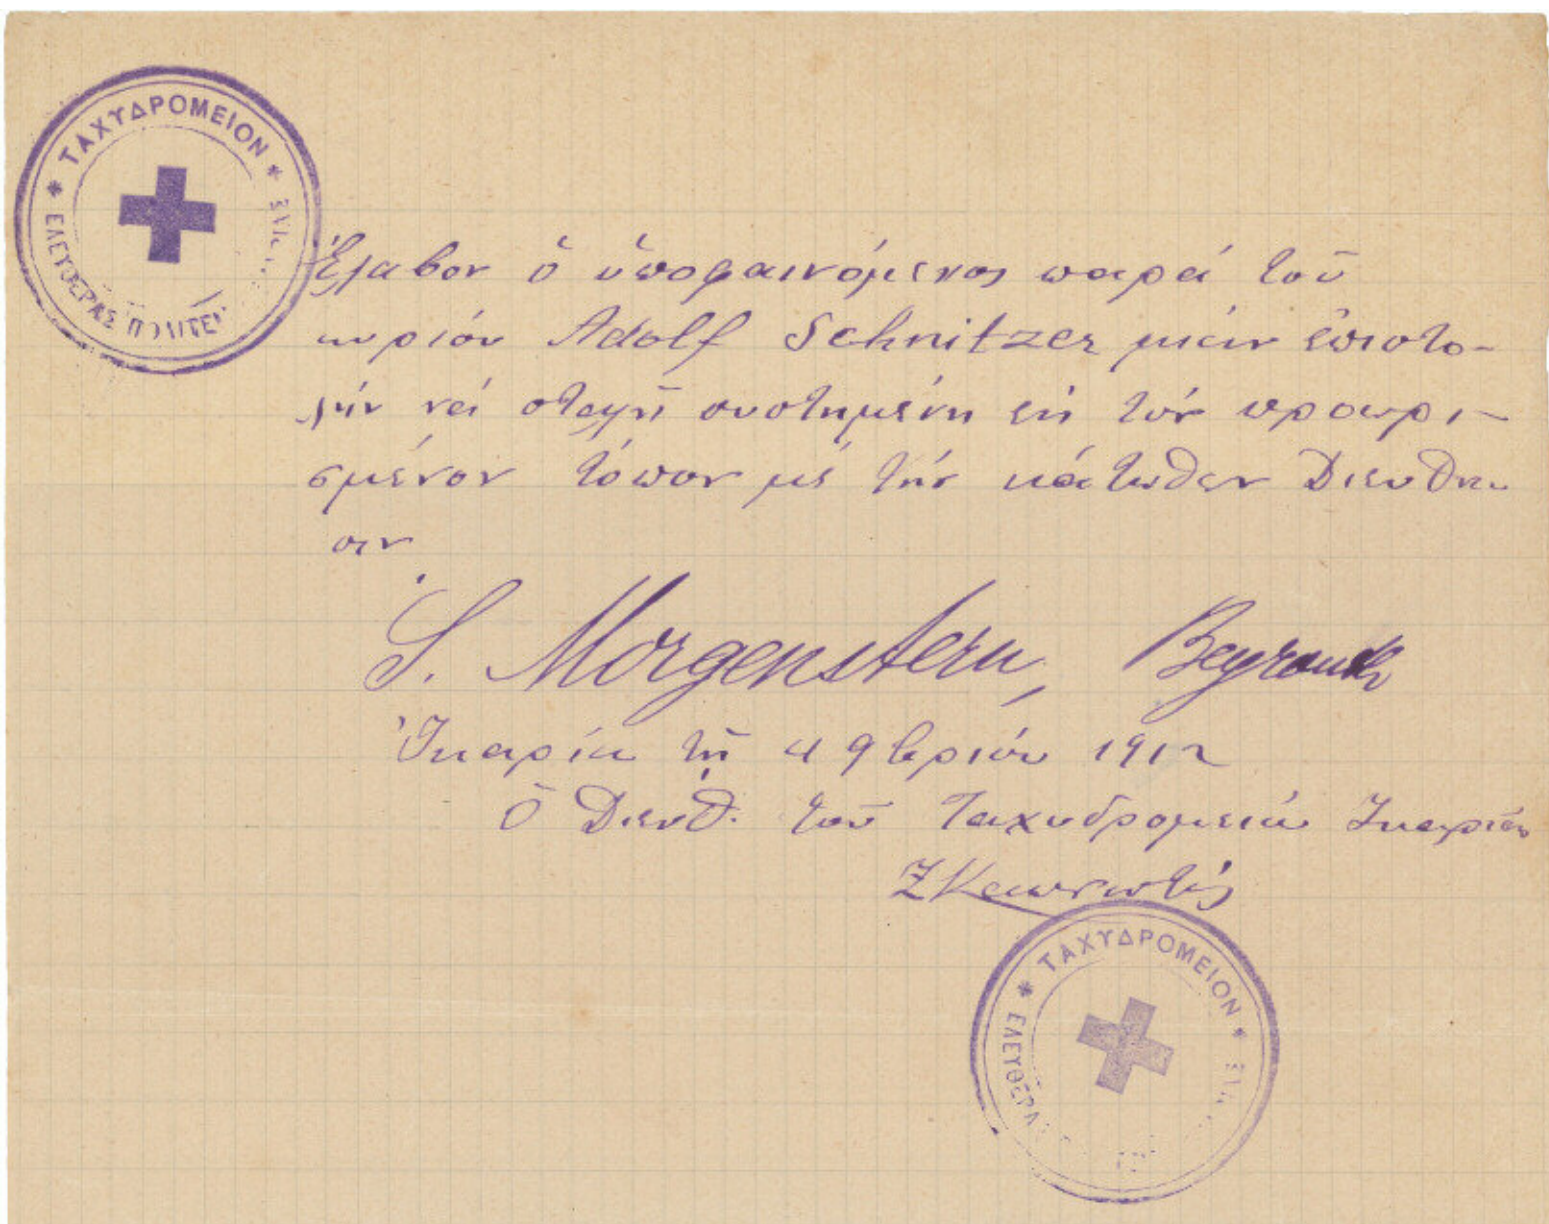 ΤΑΧΥΔΡΟΜΕΙΟΝ
ΕΛΕΥΘΕΡΑΣ ΠΟΛΙΤΕΙ
Ἔλαβον ὁ ὑποφαινόμενος παρά τοῦ
κυρίου Adolf Schnitzer μίαν ἐπιστο-
λήν νά σταλῇ συστημένη εἰς τόν προωρι-
σμένον τόπον μέ τήν κάτωθεν Διευθυν
σιν
S. Morgenstern, Beyrouth
Ἰκαρία τῇ 4 9βρίου 1912
Ὁ Διευθ. τοῦ Ταχυδρομείου Ἰκαρίας
ΤΑΧΥΔΡΟΜΕΙΟΝ
ΕΛΕΥΘΕΡΑ